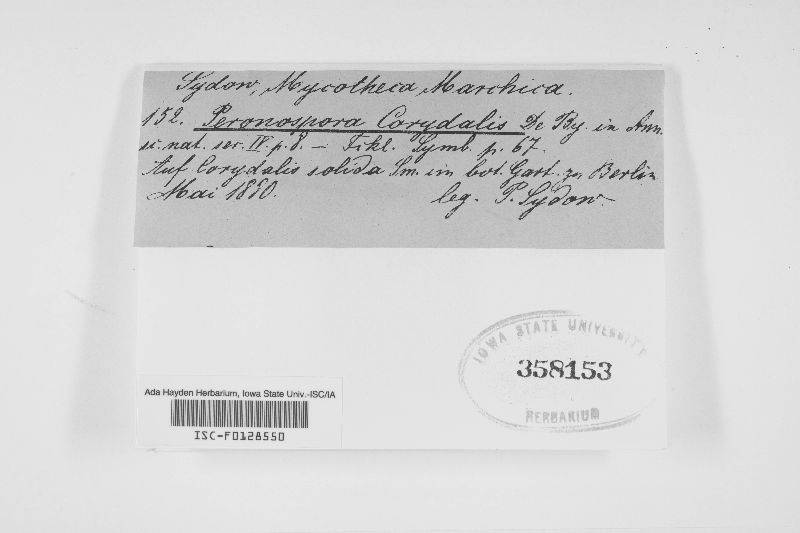 Sydow, Mycotheca Marchica.
152. Peronospora Corydalis De By. in Ann.
sc. nat. ser. IV. p. 8. — Fckl. Symb. p. 67.
Auf Corydalis solida Sm. im bot. Gart. zu Berlin
Mai 1880. leg. P. Sydow
IOWA STATE UNIVERSITY
358153
HERBARIUM
Ada Hayden Herbarium, Iowa State Univ.-ISC/IA
ISC-F0128550